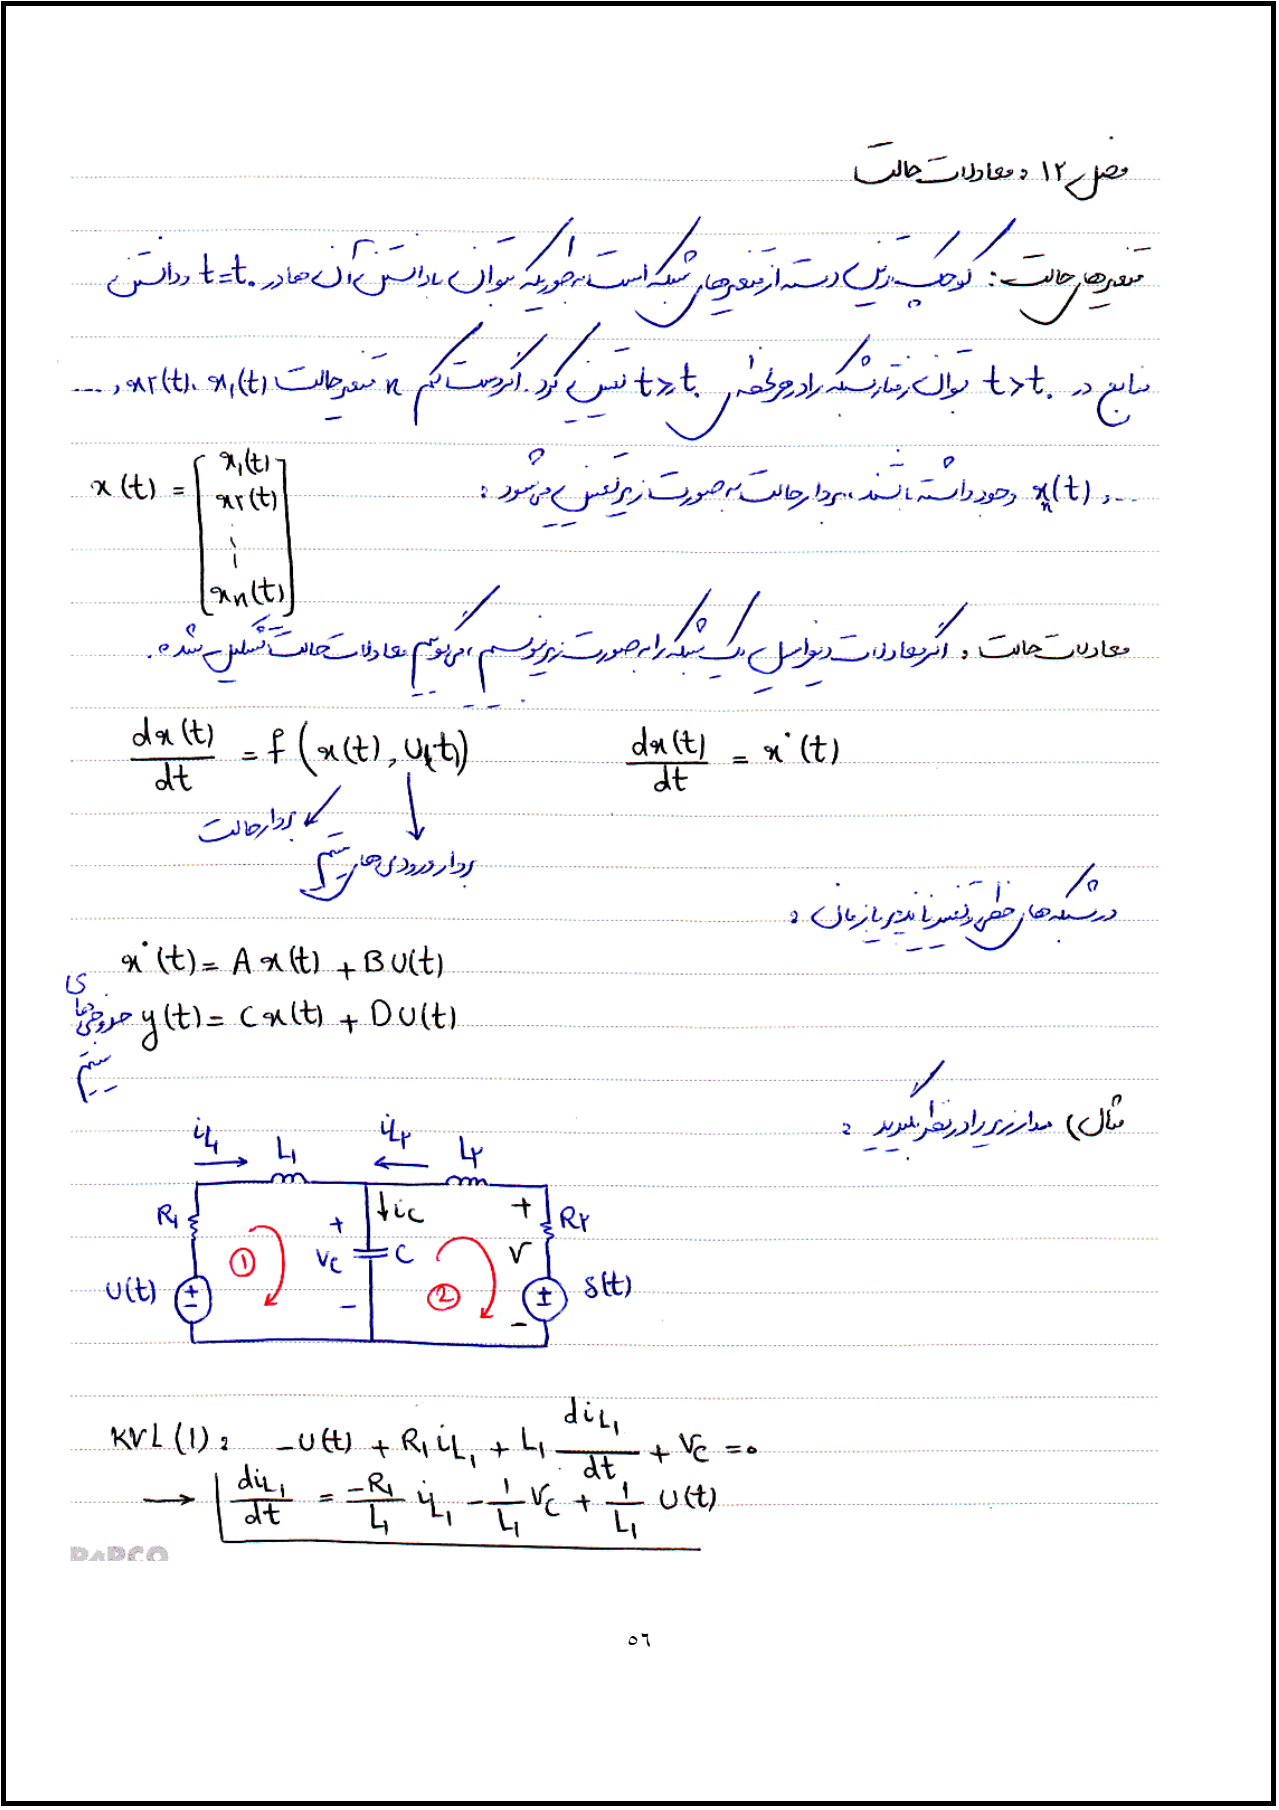 فصل ۱۲ : معادلات حالت
متغیرهای حالت : کوچک ترین دسته از متغیرهای شبکه است به طوریکه بتوان با دانستن آن ها در t=t۰ و دانستن
منابع در t>t۰ بتوان رفتار شبکه را در هر لحظه ی t>t۰ تعیین کرد. اگر دست کم n متغیر حالت x۱(t)، x۲(t)، ...
...، xn(t) وجود داشته باشند، بردار حالت به صورت زیر تعیین می شود :
x(t) = [x۱(t)
x۲(t)
⋮
xn(t)]
معادلات حالت : اگر معادلات دیفرانسیل یک شبکه را به صورت زیر بنویسیم، می گوییم معادلات حالت تشکیل شده.
dx(t)/dt = f(x(t), U(t)) dx(t)/dt = x˙(t)
بردار حالت
بردار ورودی های سیستم
در شبکه های خطی و تغییر ناپذیر با زمان :
x˙(t) = A x(t) + B U(t)
y(t) = C x(t) + D U(t)
خروجی های سیستم
مثال) مدار زیر را در نظر بگیرید :
iL۱ L۱ iL۲ L۲
R۱ + ↓ iC + R۲
① VC C V
U(t) ± − ② ± δ(t)
−
KVL (1) : −U(t) + R۱ iL۱ + L۱ diL۱/dt + VC = ۰
→ diL۱/dt = −R۱/L۱ iL۱ − ۱/L۱ VC + ۱/L۱ U(t)
PAPCO
٥٦